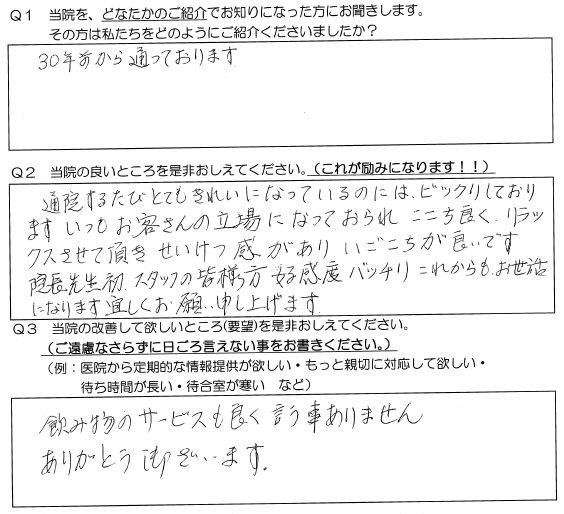 Q1 当院を、どなたかのご紹介でお知りになった方にお聞きします。
その方は私たちをどのようにご紹介くださいましたか？
30年前から通っております
Q2 当院の良いところを是非おしえてください。(これが励みになります！！)
通院するたびとてもきれいになっているのには、ビックリしており
ます いつもお客さんの立場になっておられ ここち良く、リラッ
クスさせて頂き せいけつ感があり いごこちが良いです
院長先生初 スタッフの皆様方 好感度バッチリ これからも、お世話
になります 宜しくお願い申し上げます
Q3 当院の改善して欲しいところ(要望)を是非おしえてください。
(ご遠慮なさらずに日ごろ言えない事をお書きください。)
(例：医院から定期的な情報提供が欲しい・もっと親切に対応して欲しい・
待ち時間が長い・待合室が寒い など)
飲み物のサービスも良く 言う事ありません
ありがとう御ざいます。